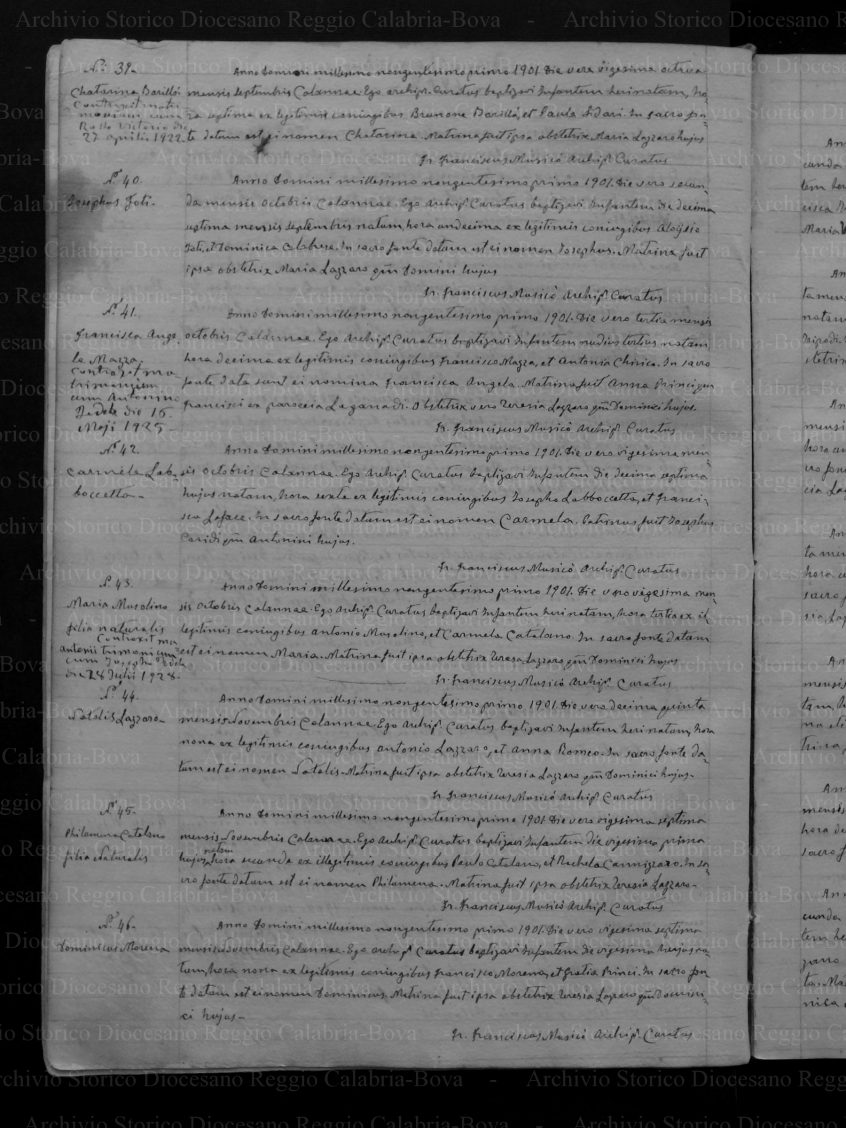 N.º 39.
Anno Domini millesimo nongentesimo primo 1901. Die vero vigesima octava
Chatarina Barillà
mensis Septembris Calannae. Ego Archip. Curatus baptizavi Infantem heri natam, ho
Contraxit matri
monium cum
ra septima ex legitimis coniugibus Brunone Barillà, et Paula Sidari. In sacro fon
Vittorio die
27 Aprilis 1922
te datum est ei nomen Chatarina. Matrina fuit ipsa obstetrix Maria Lazzaro hujus
Fr. Franciscus Musicò Archip. Curatus
N.º 40.
Anno Domini millesimo nongentesimo primo 1901. Die vero secun
Josephus Foti.
da mensis Octobris Calannae. Ego Archip. Curatus baptizavi Infantem die decima
septima mensis Septembris natum, hora undecima ex legitimis coniugibus Aloijsio
Foti, et Dominica Calabrese. In sacro fonte datum est ei nomen Josephus. Matrina fuit
ipsa obstetrix Maria Lazzaro qm Domini hujus
Fr. Franciscus Musicò Archip. Curatus
N.º 41.
Anno Domini millesimo nongentesimo primo 1901. Die vero tertia mensis
Francisca Ange
octobris Calannae. Ego Archip. Curatus baptizavi Infantem nudius tertius natam,
la Mazza
hora decima ex legitimis coniugibus Francisco Mazza, et Antonia Chirico. In sacro
contraxit ma
trimonium
fonte data sunt ei nomina Francisca Angela. Matrina fuit Anna Princi qm
cum Antonino
Francisci ex paroecia Laganadi. Obstetrix vero Teresia Lazzaro qm Dominici hujus.
die 16
Maji 1925
Fr. Franciscus Musicò Archip. Curatus
N.º 42.
Anno Domini millesimo nongentesimo primo 1901. Die vero vigesima men
Carmela Lab
sis octobris Calannae. Ego Archip. Curatus baptizavi Infantem die decima septima
boccetta
hujus natam, hora sexta ex legitimis coniugibus Josepho Labboccetta, et Franci
sca Laface. In sacro fonte datum est ei nomen Carmela. Patrinus fuit Josephus
Caridi qm Antonini hujus.
Fr. Franciscus Musicò Archip. Curatus
N. 43.
Anno Domini millesimo nongentesimo primo 1901. Die vero vigesima men
Maria Musolino
sis octobris Calannae. Ego Archip. Curatus baptizavi Infantem heri natam, hora tertia ex il
filia naturalis
legitimis coniugibus Antonio Musolino, et Carmela Catalano. In sacro fonte datum
Contraxit ma
Antonii trimonium
est ei nomen Maria. Matrina fuit ipsa obstetrix Teresa Lazzaro qm Dominici hujus
cum Josepho
die 28 Julii 1928.
Fr. Franciscus Musicò Archip. Curatus
N.º 44.
Anno Domini millesimo nongentesimo primo 1901. Die vero decima quinta
Natalis Lazzaro
mensis Novembris Calannae. Ego Archip. Curatus baptizavi Infantem heri natam, hora
nona ex legitimis coniugibus Antonio Lazzaro, et Anna Romeo. In sacro fonte da
tum est ei nomen Natalis. Matrina fuit ipsa obstetrix Teresia Lazzaro qm Dominici hujus.
Fr. Franciscus Musicò Archip. Curatus
N.º 45.
Anno Domini millesimo nongentesimo primo 1901 Die vero vigesima septima
Philomena Catalano
mensis Novembris Calannae. Ego Archip. Curatus baptizavi Infantem die vigesima prima
filia Naturalis
hujus natam, hora secunda ex illegitimis coniugibus Paulo Catalano, et Rachela Cannizzaro. In sa
cro fonte datum est ei nomen Philomena. Matrina fuit ipsa obstetrix Teresia Lazzaro
Fr. Franciscus Musicò Archip. Curatus
N.º 46.
Anno Domini millesimo nongentesimo primo 1901. Die vero vigesima septima
Dominicus Morena
mensis Novembris Calannae. Ego Archip. Curatus baptizavi Infantem die vigesima hujus na
tum, hora nona ex legitimis coniugibus Francisco Morena, et Gratia Princi. In sacro fon
te datum est ei nomen Dominicus. Matrina fuit ipsa obstetrix Teresia Lazzaro qm Domini
ci hujus.
Fr. Franciscus Musicò Archip. Curatus
Archivio Storico Diocesano Reggio Calabria-Bova